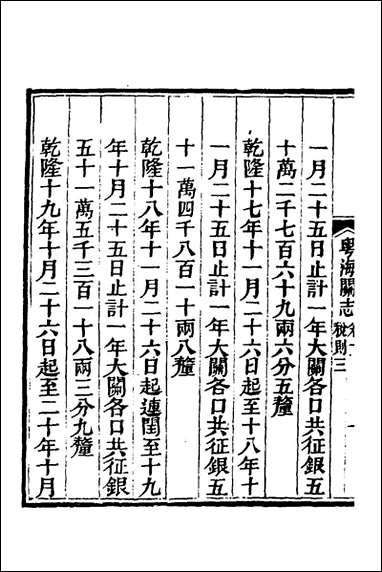 粵海關志
稅則三
一月二十五日止計一年大關各口共征銀五
十萬二千七百六十九兩六分五釐
乾隆十七年十一月二十六日起至十八年十
一月二十五日止計一年大關各口共征銀五
十一萬四千八百一十兩八釐
乾隆十八年十一月二十六日起連閏至十九
年十月二十五日止計一年大關各口共征銀
五十一萬五千三百一十八兩三分九釐
乾隆十九年十月二十六日起至二十年十月